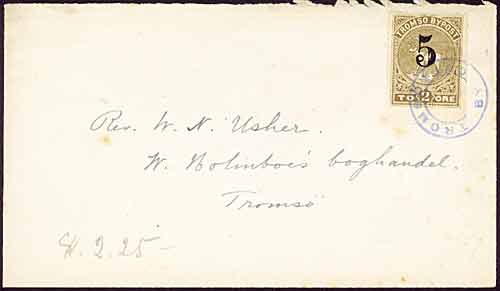 TROMSØ BYPOST
5
2
TO ØRE
TROMSØ
Rev. W. N. Usher.
W. Holmboes boghandel.
Tromsö
2.25